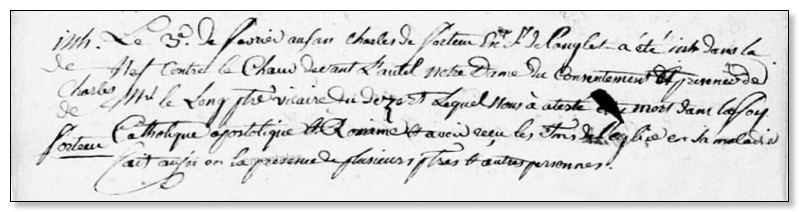 inh. Le 3e. de fevrier aud an charles de forteu Ecr. Sr. de Langlet a été inh dans la
de Nef Contre le Chaur devant L'autel Notre Dame du Consentement et prieres de
Charles Mr. le Long ptre vicaire du de lequel nous à atesté etre mort dans la foy
de
forteau Catholique apostolique et Romaine et avoir receu les de l'eglise en sa maladie
fait aussi en la presence de plusieurs ptres et autres personnes.